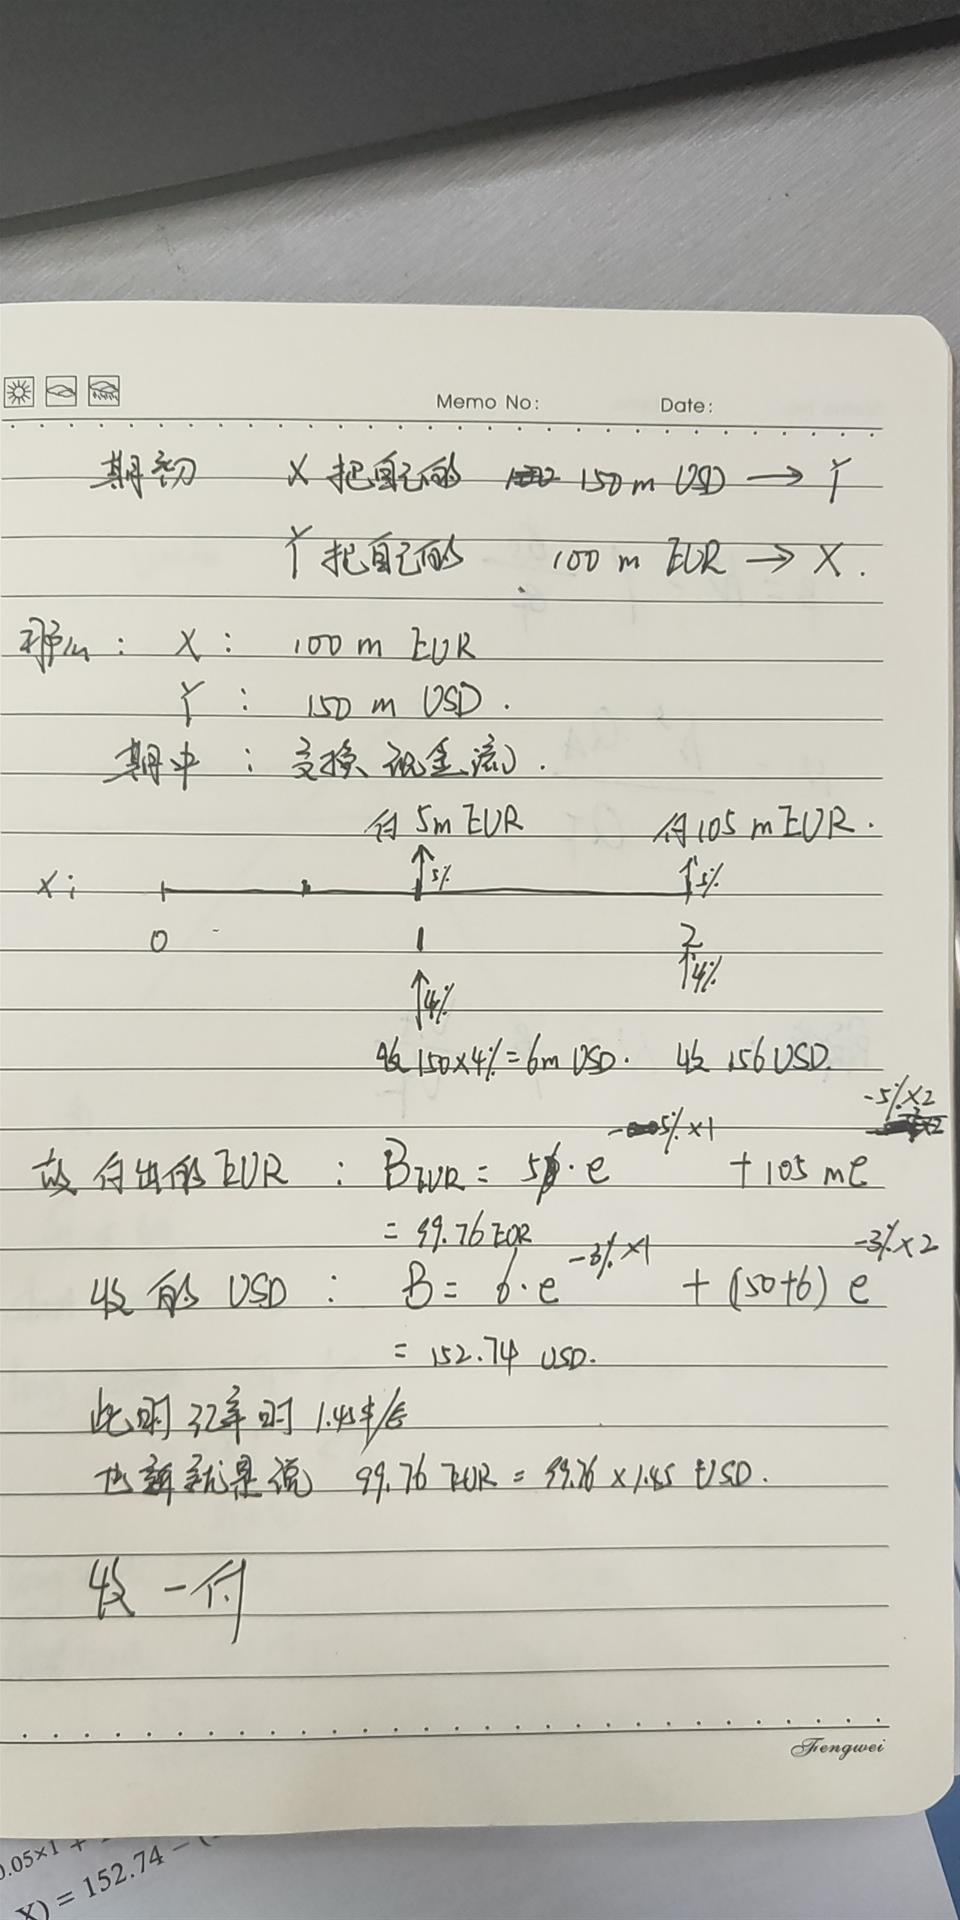 Memo No: Date:
期初 X 把自己的 150 m USD → Y
Y 把自己的 100 m EUR → X.
那么: X: 100 m EUR
Y: 150 m USD.
期中: 交换现金流.
付 5m EUR 付 105 m EUR.
X: ↑5% ↑5%
0 1 2
↑4% ↑4%
收 150×4%=6m USD. 收 156 USD.
-5%×1 -5%×2
故 付出的 EUR: B EUR = 5 · e + 105 m e
= 99.76 EUR
-3%×1 -3%×2
收 的 USD: B = 6·e + (150+6) e
= 152.74 USD.
此时 汇率时 1.45$/€
也就是说 99.76 EUR = 99.76 × 1.45 USD.
收 - 付
Fengwei
0.05×1 +
X) = 152.74 − (